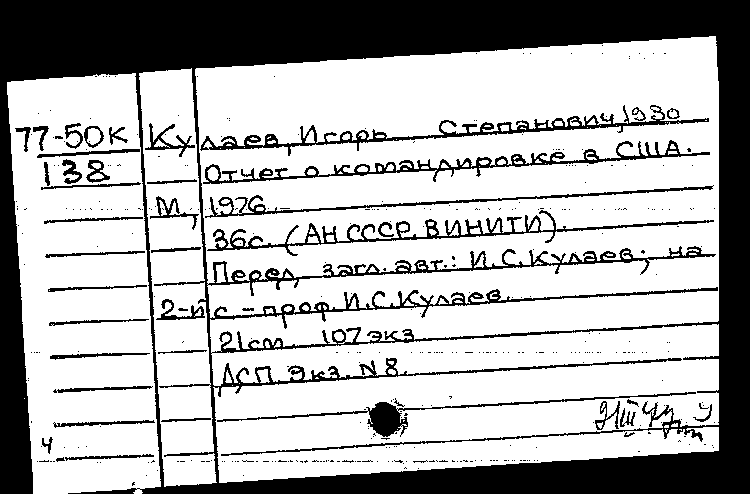 77-50К Кулаев, Игорь Степанович, 1930
138 Отчет о командировке в США.
М., 1976.
36с. (АН СССР. ВИНИТИ).
Перед загл. авт.: И.С.Кулаев; на
2-й с - проф. И.С.Кулаев.
21см 107экз
ДСП Экз. N 8.
4